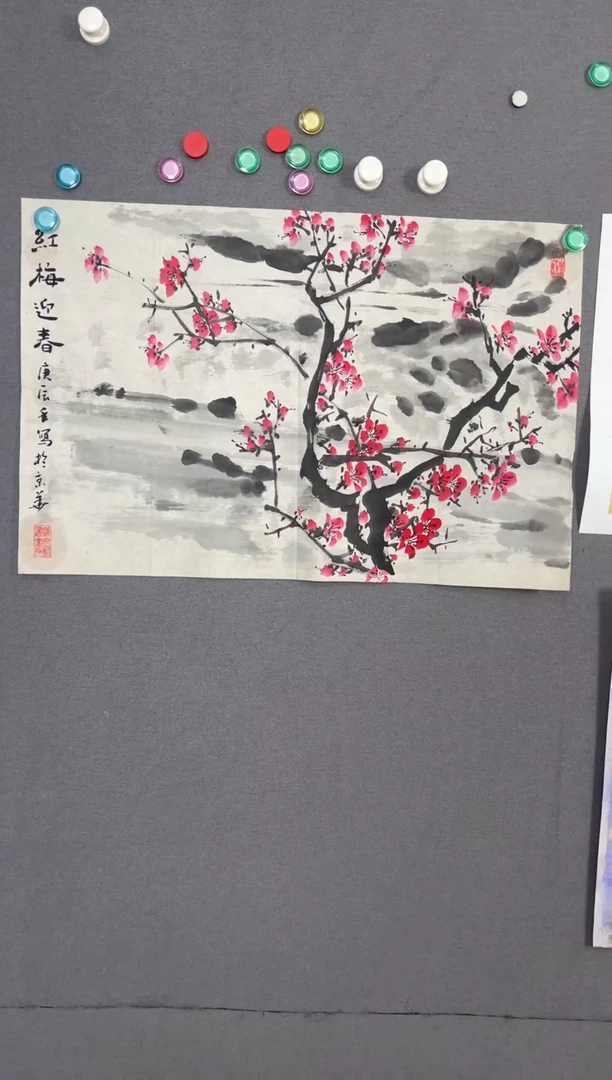 紅梅迎春
庚辰年寫於京華